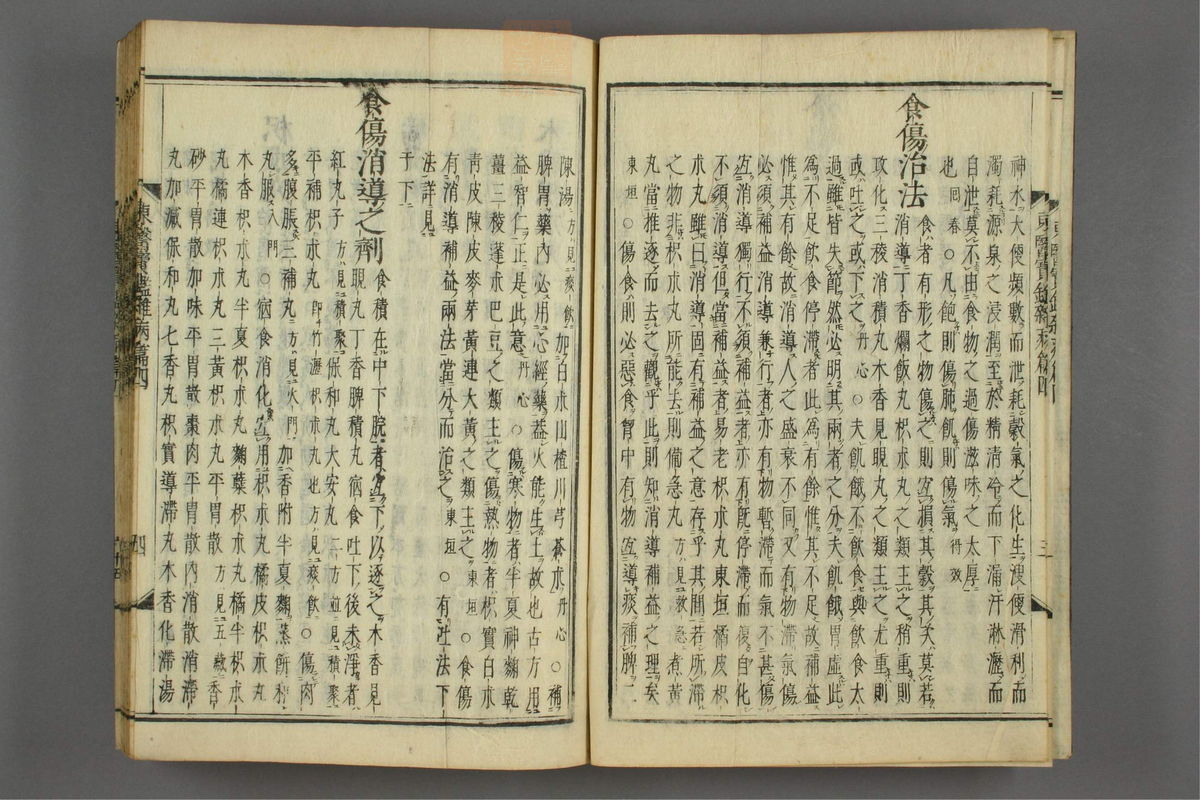 神水大便頻數而泄耗穀氣之化生溲便滑利而
濁耗源泉之浸潤至於精淸冷而下漏汗淋瀝而
自泄莫不由食物之過傷滋味之太厚
也 回春 ○凡飽則傷肺飢則傷氣 得效
食傷治法 食者有形之物傷之則宜損其穀其次莫若
消導丁香爛飯丸枳朮丸之類主之稍重則
攻化三稜消積丸木香見晛丸之類主之尤重則
或吐之或下之 丹心 ○夫飢餓不飮食與飮食太
過雖皆失節然必明其兩者之分夫飢餓胃虛此
爲不足飮食停滯者此爲有餘惟其不足故補益
惟其有餘故消導人之盛衰不同又有物滯氣傷
必須補益消導兼行者亦有物暫滯而氣不甚傷
宜消導獨行不須補益者亦有旣停滯而復自化
不須消導但當補益者易老枳朮丸東垣橘皮枳
朮丸雖曰消導固有補益之意存乎其間若所滯
之物非枳朮丸所能去則備急丸 方見救急 煮黃
丸當推逐而去之觀乎此則知消導補益之理矣
東垣 ○傷食則必惡食胷中有物宜導痰補脾二
陳湯 方見痰飮 加白朮山楂川芎蒼朮 丹心 ○補
脾胃藥內必用心經藥益火能生土故也古方用
益智仁正是此意 丹心 ○傷寒物者半夏神麴乾
薑三稜蓬朮巴豆之類主之傷熱物者枳實白朮
靑皮陳皮麥芽黃連大黃之類主之 東垣 ○食傷
有消導補益兩法當分而治之 東垣 ○有吐法下
法詳見
于下
食傷消導之劑 食積在中下脘者宜下以逐之木香見
晛丸丁香脾積丸宿食吐下後未淨者
紅丸子 方見積聚 保和丸大安丸 二方並見積聚
平補枳朮丸 卽竹瀝枳朮丸也方見痰飮 ○傷肉
多腹脹三補丸 方見火門 加香附半夏麴蒸餠和
丸服 入門 ○宿食消化宜用枳朮丸橘皮枳朮丸
木香枳朮丸半夏枳朮丸麴蘗枳朮丸橘半枳朮
丸橘連枳朮丸三黃枳朮丸平胃散 方見五藏 香
砂平胃散加味平胃散棗肉平胃散內消散消滯
丸加減保和丸七香丸枳實導滯丸木香化滯湯
東醫寶鑑雜病篇四
四